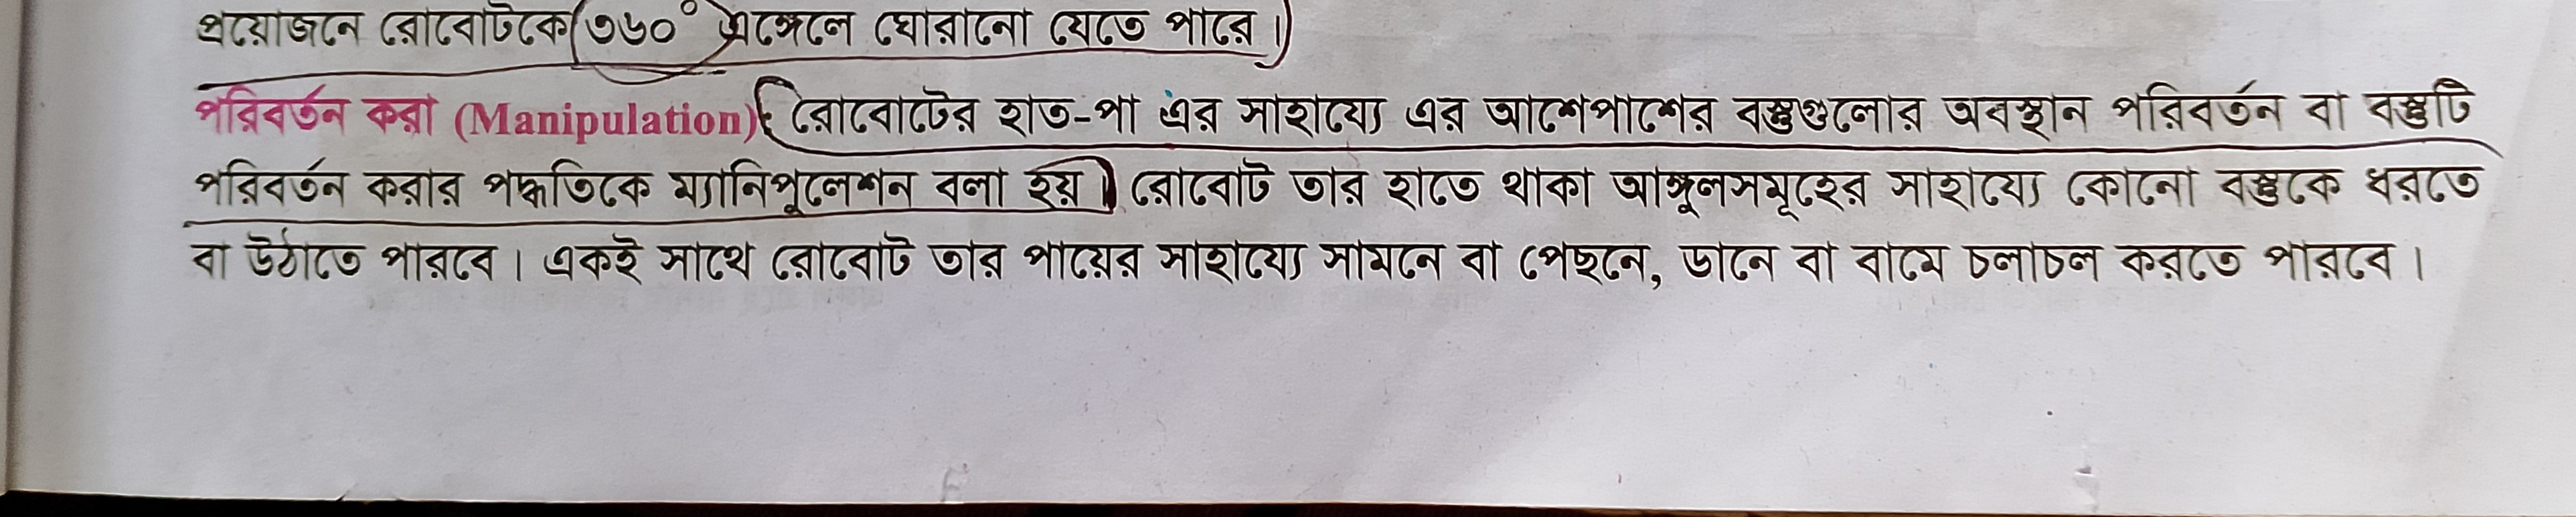 প্রয়োজনে রোবোটকে ৩৬০° এঙ্গেলে ঘোরানো যেতে পারে।
পরিবর্তন করা (Manipulation): রোবোটের হাত-পা এর সাহায্যে এর আশেপাশের বস্তুগুলোর অবস্থান পরিবর্তন বা বস্তুটি
পরিবর্তন করার পদ্ধতিকে ম্যানিপুলেশন বলা হয়। রোবোট তার হাতে থাকা আঙ্গুলসমূহের সাহায্যে কোনো বস্তুকে ধরতে
বা উঠাতে পারবে। একই সাথে রোবোট তার পায়ের সাহায্যে সামনে বা পেছনে, ডানে বা বামে চলাচল করতে পারবে।